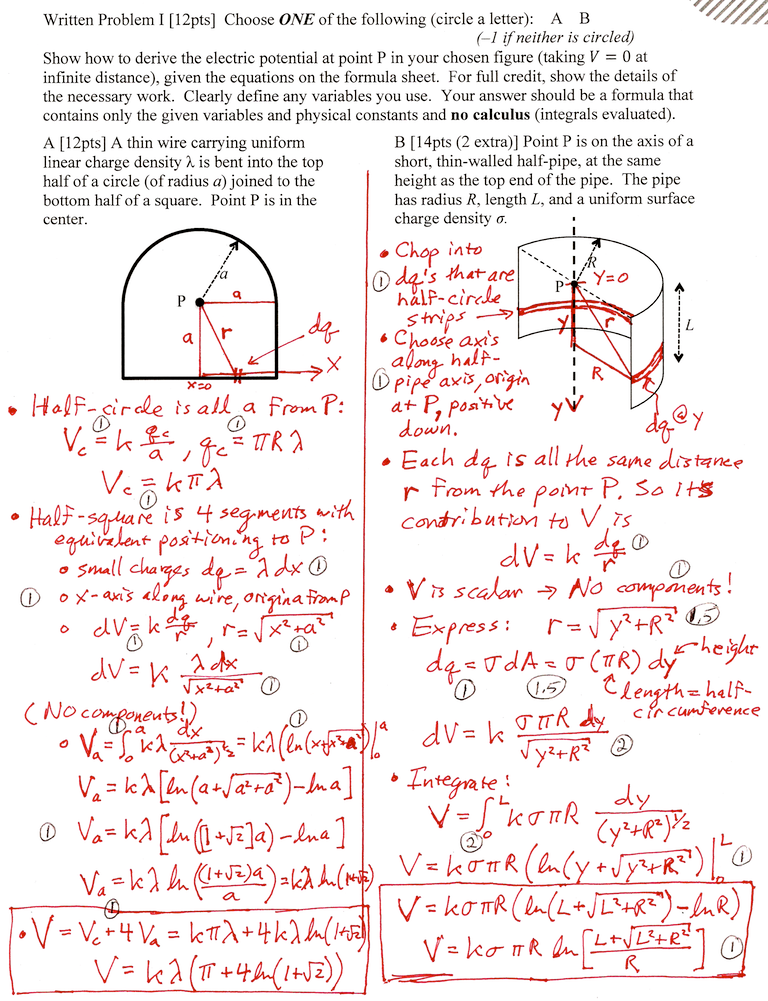 Written Problem I [12pts] Choose ONE of the following (circle a letter): A B
(–1 if neither is circled)
Show how to derive the electric potential at point P in your chosen figure (taking V = 0 at
infinite distance), given the equations on the formula sheet. For full credit, show the details of
the necessary work. Clearly define any variables you use. Your answer should be a formula that
contains only the given variables and physical constants and no calculus (integrals evaluated).
A [12pts] A thin wire carrying uniform
linear charge density λ is bent into the top
half of a circle (of radius a) joined to the
bottom half of a square. Point P is in the
center.
a
P
a
a
r
dq
x=0
X
• Half-circle is all a from P:
① ①
V_c = k q_c/a , q_c = πRλ
V_c = kπλ
①
• Half-square is 4 segments with
equivalent positioning to P:
o small charges dq = λdx ①
① o x-axis along wire, origin a from P
o dV = k dq/r , r = √(x²+a²)
① ①
dV = k λdx/√(x²+a²) ①
(No components!)
① ①
o V_a = ∫₀ᵃ kλ dx/(x²+a²)^½ = kλ(ln(x+√(x²+a²))|₀ᵃ
V_a = kλ[ln(a+√(a²+a²))–ln a]
① V_a = kλ[ln([1+√2]a)–ln a]
V_a = kλ ln((1+√2)a/a) = kλ ln(1+√2)
①
• V = V_c + 4V_a = kπλ + 4kλ ln(1+√2)
V = kλ(π+4ln(1+√2))
B [14pts (2 extra)] Point P is on the axis of a
short, thin-walled half-pipe, at the same
height as the top end of the pipe. The pipe
has radius R, length L, and a uniform surface
charge density σ.
• Chop into
① dq's that are
half-circle
strips →
• Choose axis
along half-
① pipe axis, origin
at P, positive
down.
R
P
y=0
y
r
L
R
r
y
dq @ y
• Each dq is all the same distance
r from the point P. So its
contribution to V is
dV = k dq/r ①
①
• V is scalar → No components!
• Express: r = √(y²+R²) 1.5
dq = σdA = σ(πR) dy ← height
① 1.5 length = half-
circumference
dV = k σπR dy/√(y²+R²) ②
• Integrate:
V = ∫₀ᴸ kσπR dy/(y²+R²)^½
②
V = kσπR (ln(y+√(y²+R²))|₀ᴸ ①
V = kσπR (ln(L+√(L²+R²))–ln R)
V = kσπR ln[(L+√(L²+R²))/R] ①